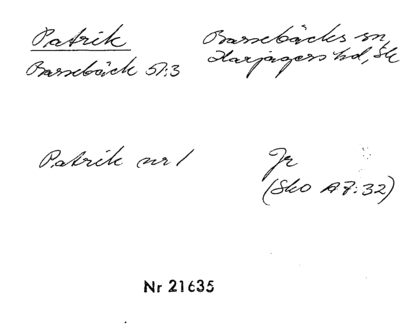 Patrik
Barsebäck 51:3
Barsebäcks sn,
Harjagers hd, Sk
Patrik nr 1
Jr
(Sko A7:32)
Nr 21635